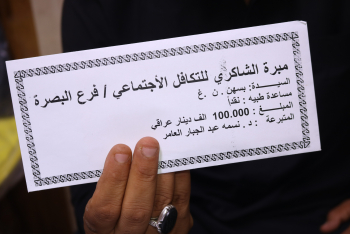 مبرة الشاكري للتكافل الأجتماعي / فرع البصرة
السيدة: بسهن . ن . غ
مساعدة طبيه : نقدا
المبلغ : 100.000 الف دينار عراقي
المتبرعة : د . نسمه عبد الجبار العامر